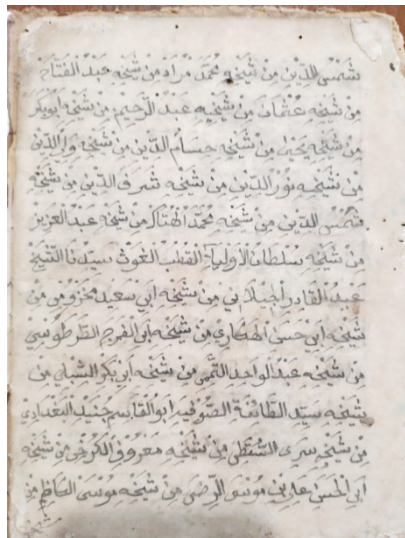 شَمْسِ الدِّيْنِ مِنْ شَيْخِهِ مُحَمَّدْ مُرَادْ مِنْ شَيْخِهِ عَبْدُ الْفَتَاحْ
مِنْ شَيْخِهِ عُثْمَانْ مِنْ شَيْخِهِ عَبْدُ الرَّحِيْمِ مِنْ شَيْخِهِ اَبُوْبَكَرْ
مِنْ شَيْخِهِ يَحْيٰى مِنْ شَيْخِهِ حِسَامُ الدِّيْنِ مِنْ شَيْخِهِ وَلِ الدِّيْنِ
مِنْ شَيْخِهِ نُوْرُ الدِّيْنِ مِنْ شَيْخِهِ شَرَفُ الدِّيْنِ مِنْ شَيْخِهِ
شَمْسِ الدِّيْنِ مِنْ شَيْخِهِ مُحَمَّدْ الْهَتَاكْ مِنْ شَيْخِهِ عَبْدُ الْعَزِيْزْ
مِنْ شَيْخِهِ سُلْطَانُ الْاَوْلِيَاءِ الْقُطْبُ الْغَوْثِ سَيِّدُنَا الشَّيْخْ
عَبْدُ الْقَادِرْ الْجِيْلَانِي مِنْ شَيْخِهِ اَبِي سَعِيْدْ مَخْزُوْمِي مِنْ
شَيْخِهِ اَبِي حَسَنْ الْهَكَارِي مِنْ شَيْخِهِ اَبِى الْفَرَجْ الطَّرْطُوْسِي
مِنْ شَيْخِهِ عَبْدُ الْوَاحِدْ التَّمِيْ مِنْ شَيْخِهِ اَبُوْ بَكَرْ الشِّبْلِي مِنْ
شَيْخِهِ سَيِّدْ الطَّائِفَةِ الصُّوْفِيَةِ اَبُو الْقَاسِمْ جُنَيْدِ الْبَغْدَادِيْ
مِنْ شَيْخِهِ سَرِى السُّقْطِى مِنْ شَيْخِهِ مَعْرُوْفُ الْكَرْخِى مِنْ شَيْخِهِ
اَبِى الْحَسَنْ عَلِي بْنِ مُوْسَى الرِّضٰى مِنْ شَيْخِهِ مُوْسَى الْكَاظِمْ مِنْ
شيخه